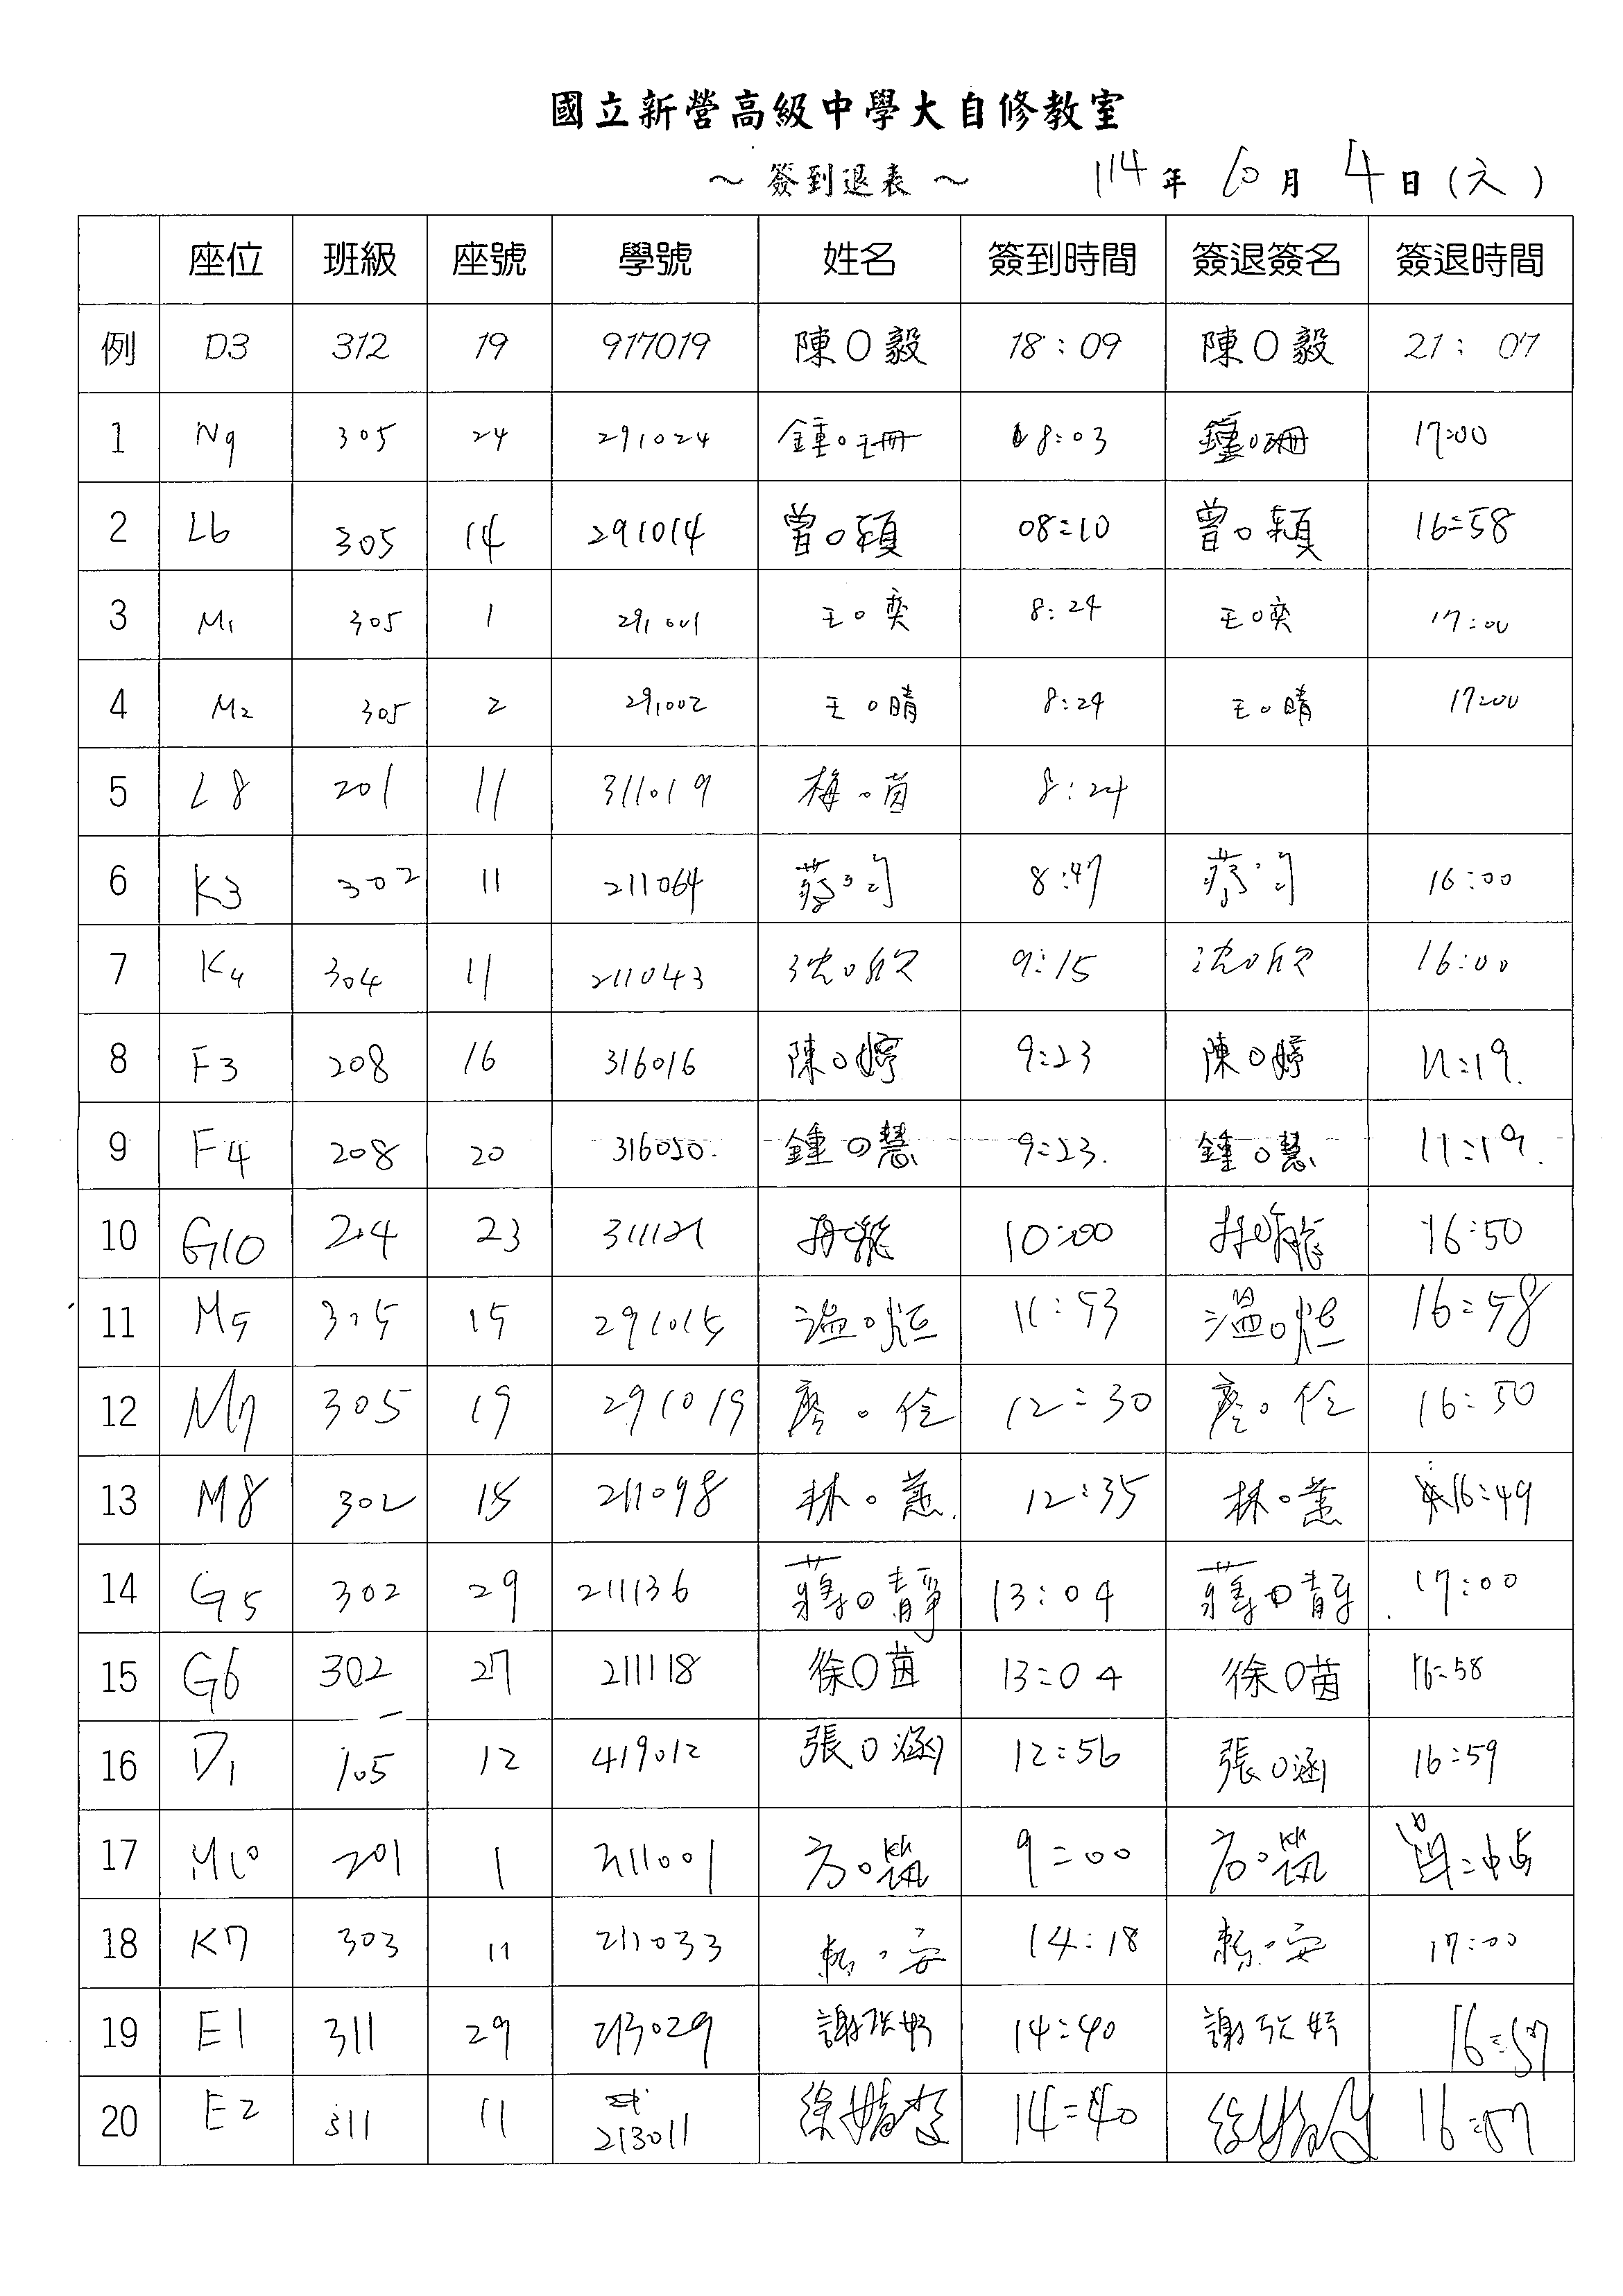 國立新營高級中學大自修教室
~ 簽到退表 ~ 114年 10月 4日(六)
座位 班級 座號 學號 姓名 簽到時間 簽退簽名 簽退時間
例 D3 312 19 917019 陳〇毅 18:09 陳〇毅 21:07
1 N9 305 24 291024 鍾〇珊 08:03 鍾〇珊 17:00
2 L6 305 14 291014 曾〇穎 08:10 曾〇穎 16:58
3 M1 305 1 291001 王〇奕 8:24 王〇奕 17:00
4 M2 305 2 291002 王〇晴 8:24 王〇晴 17:00
5 L8 201 11 311019 梅〇茵 8:24
6 K3 302 11 211064 蔡〇 8:47 蔡〇 16:00
7 K4 304 11 211043 沈〇欣 9:15 沈〇欣 16:00
8 F3 208 16 316016 陳〇婷 9:23 陳〇婷 11:19.
9 F4 208 20 316020. 鍾〇慧 9:23. 鍾〇慧 11:19.
10 G10 204 23 311121 10:00 16:50
11 M5 305 15 291015 溫〇烜 11:53 溫〇烜 16:58
12 M7 305 19 291019 廖〇佺 12:30 廖〇佺 16:50
13 M8 302 15 211098 林〇蕙. 12:35 林〇蕙 16:49
14 G5 302 29 211136 蔣〇靜 13:04 蔣〇靜 17:00
15 G6 302 27 211118 徐〇茵 13:04 徐〇茵 16:58
16 D1 105 12 419012 張〇涵 12:56 張〇涵 16:59
17 M10 201 1 311001 方〇 9:00 方〇
18 K7 303 11 211033 賴〇安 14:18 賴〇安 17:00
19 E1 311 29 213029 謝 妤 14:40 謝 妤 16:57
20 E2 311 11 213011 徐 14:40 徐 16:57